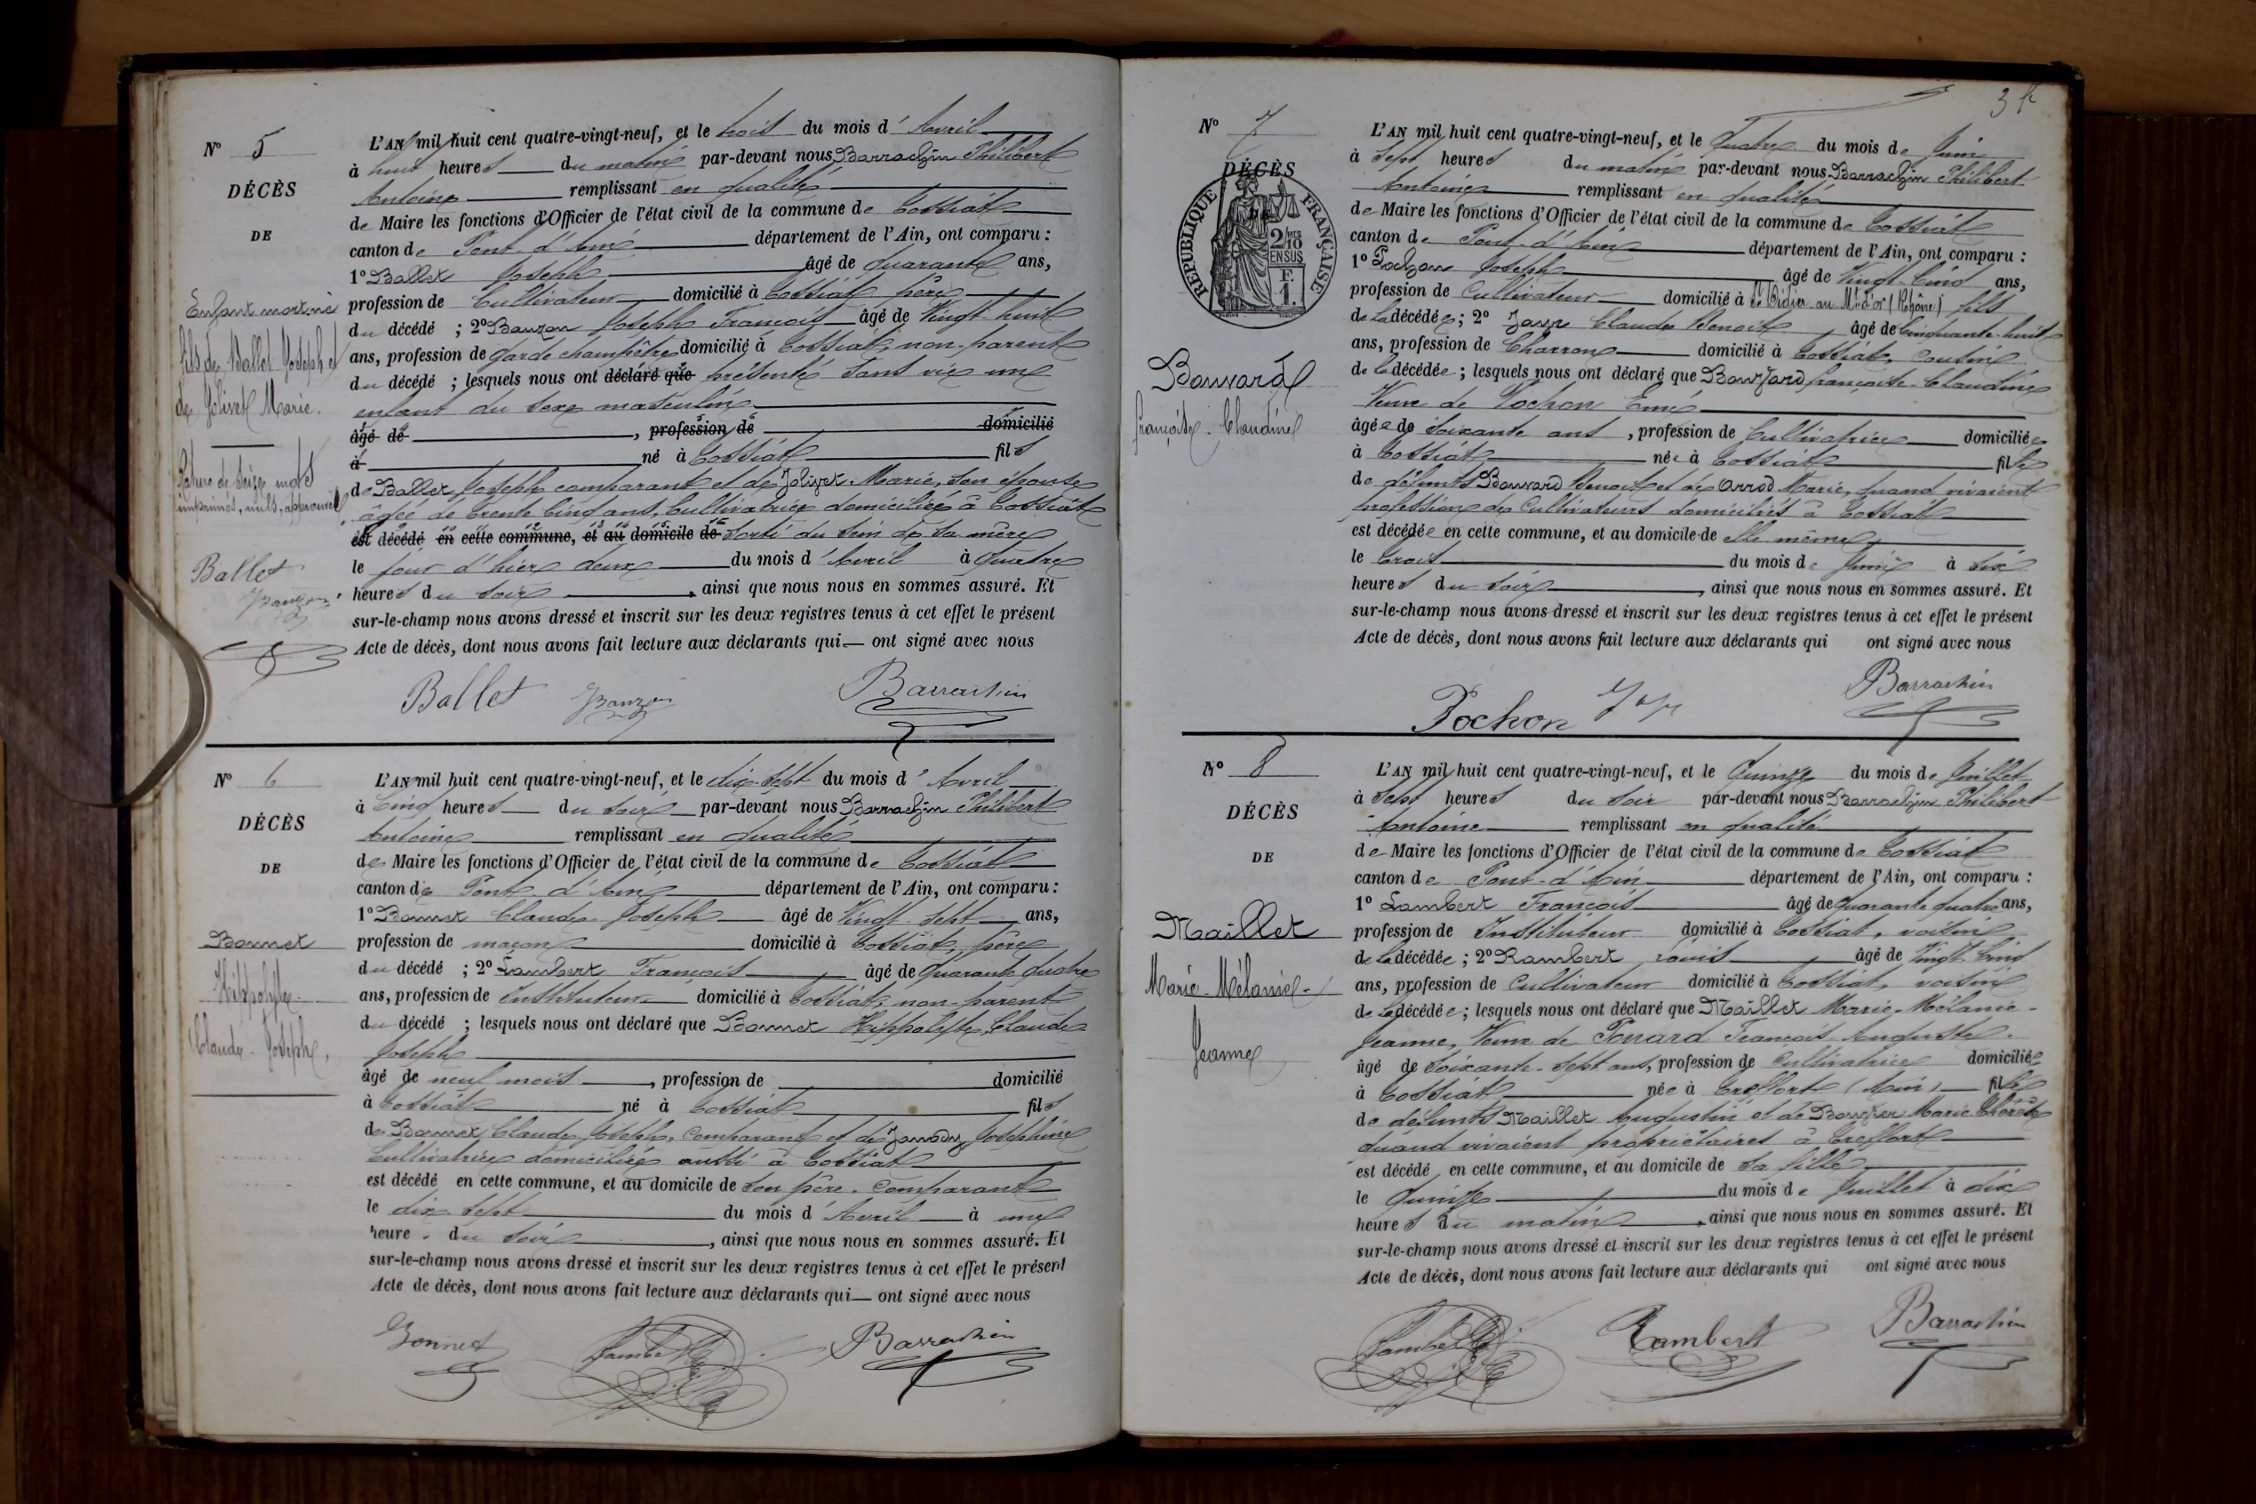 N° 5
DÉCÈS
DE
Enfant mort-né
fils de Ballet Joseph et
de Jolivet Marie.
Rature de seize mots
imprimés, nuls, approuvée
Ballet
Bauzon
L'AN mil huit cent quatre-vingt-neuf, et le trois du mois d'Avril
à huit heures du matin par-devant nous Barrachin Philibert
Antoine remplissant en qualité
de Maire les fonctions d'Officier de l'état civil de la commune de Cossiat
canton de Pont d'Ain département de l'Ain, ont comparu :
1° Ballet Joseph âgé de quarante ans,
profession de Cultivateur domicilié à Cossiat, père
du décédé ; 2° Bauzon Joseph François âgé de Vingt-huit
ans, profession de garde champêtre domicilié à Cossiat, non-parent
du décédé ; lesquels nous ont déclaré que présenté sans vie un
enfant du sexe masculin
âgé de , profession de domicilié
à né à Cossiat fils
de Ballet Joseph comparant et de Jolivet Marie, son épouse
âgée de trente cinq ans, Cultivatrice domiciliée à Cossiat
est décédé en cette commune, et au domicile de sorti du sein de sa mère
le jour d'hier deux du mois d'Avril à quatre
heures du soir , ainsi que nous nous en sommes assuré. Et
sur-le-champ nous avons dressé et inscrit sur les deux registres tenus à cet effet le présent
Acte de décès, dont nous avons fait lecture aux déclarants qui ont signé avec nous
Ballet Bauzon Barrachin
N° 6
DÉCÈS
DE
Bonnet
Hippolyte
Claude-Joseph.
L'AN mil huit cent quatre-vingt-neuf, et le dix-sept du mois d'Avril
à Cinq heures du soir par-devant nous Barrachin Philibert
Antoine remplissant en qualité
de Maire les fonctions d'Officier de l'état civil de la commune de Cossiat
canton de Pont d'Ain département de l'Ain, ont comparu :
1° Bonnet Claude Joseph âgé de Vingt-sept ans,
profession de maçon domicilié à Cossiat, père
du décédé ; 2° Lambert François âgé de Quarante quatre
ans, profession de Instituteur domicilié à Cossiat, non-parent
du décédé ; lesquels nous ont déclaré que Bonnet Hippolyte Claude
Joseph
âgé de neuf mois , profession de domicilié
à Cossiat né à Cossiat fils
de Bonnet Claude Joseph, comparant et de Joséphine
Cultivatrice domiciliée aussi à Cossiat
est décédé en cette commune, et au domicile de son père, comparant
le dix-sept du mois d'Avril à une
heure du soir , ainsi que nous nous en sommes assuré. Et
sur-le-champ nous avons dressé et inscrit sur les deux registres tenus à cet effet le présent
Acte de décès, dont nous avons fait lecture aux déclarants qui ont signé avec nous
Bonnet Lambert Barrachin
3
N° 7
DÉCÈS
RÉPUBLIQUE FRANÇAISE
2/10 EN SUS
F.
1.
Bouvard
Françoise-Claudine
L'AN mil huit cent quatre-vingt-neuf, et le Quatre du mois de Juin
à Sept heures du matin par-devant nous Barrachin Philibert
Antoine remplissant en qualité
de Maire les fonctions d'Officier de l'état civil de la commune de Cossiat
canton de Pont-d'Ain département de l'Ain, ont comparu :
1° Pochon Joseph âgé de Vingt-Cinq ans,
profession de Cultivateur domicilié à St Didier-au-Mt-d'or (Rhône) fils
de la décédée ; 2° Claude Benoit âgé de Cinquante-huit
ans, profession de Charron domicilié à Cossiat, cousin
de la décédée ; lesquels nous ont déclaré que Bouvard françoise-Claudine
Veuve de Pochon Aimé
âgée de soixante ans , profession de Cultivatrice domiciliée
à Cossiat née à Cossiat fille
de défunts Bouvard Benoit et de Marie, quand vivaient
profession de Cultivateurs domiciliés à Cossiat
est décédée en cette commune, et au domicile de elle même
le trois du mois de Juin à six
heures du soir , ainsi que nous nous en sommes assuré. Et
sur-le-champ nous avons dressé et inscrit sur les deux registres tenus à cet effet le présent
Acte de décès, dont nous avons fait lecture aux déclarants qui ont signé avec nous
Pochon Barrachin
N° 8
DÉCÈS
DE
Maillet
Marie-Mélanie-
Jeanne
L'AN mil huit cent quatre-vingt-neuf, et le Quinze du mois de Juillet
à Sept heures du soir par-devant nous Barrachin Philibert
Antoine remplissant en qualité
de Maire les fonctions d'Officier de l'état civil de la commune de Cossiat
canton de Pont-d'Ain département de l'Ain, ont comparu :
1° Lambert François âgé de Quarante quatre ans,
profession de Instituteur domicilié à Cossiat, voisin
de la décédée ; 2° Rambert Louis âgé de Vingt-Cinq
ans, profession de Cultivateur domicilié à Cossiat, voisin
de la décédée ; lesquels nous ont déclaré que Maillet Marie-Mélanie-
Jeanne, Veuve de Ponard François Auguste.
âgé de Soixante-sept ans, profession de Cultivatrice domiciliée
à Cossiat née à Treffort (Ain) fille
de défunts Maillet Augustin et de Marie Thérèse
quand vivaient propriétaires à Treffort
est décédé en cette commune, et au domicile de sa fille
le Quinze du mois de Juillet à dix
heures du matin , ainsi que nous nous en sommes assuré. Et
sur-le-champ nous avons dressé et inscrit sur les deux registres tenus à cet effet le présent
Acte de décès, dont nous avons fait lecture aux déclarants qui ont signé avec nous
Lambert Rambert Barrachin